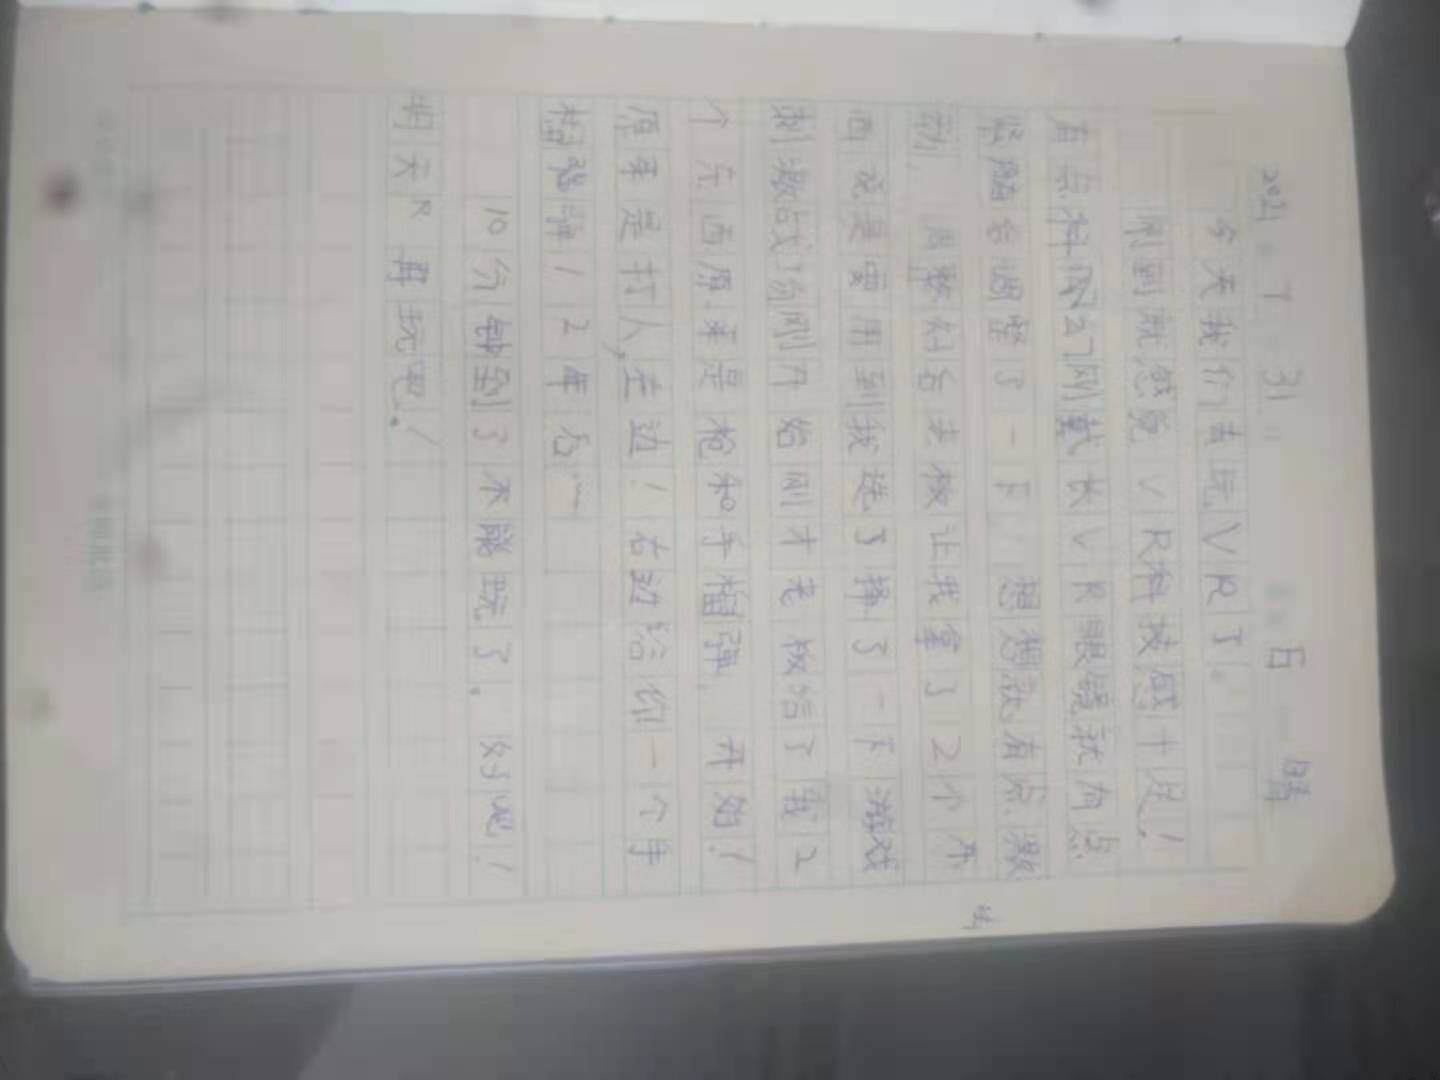 2021 7 31 日 晴
今天我们去玩VR了。
刚到就感觉VR科技感十足！
有点科幻了刚戴上VR眼镜就有点
紧脑合调整了一下，想想就有点激
动，调整好后老板让我拿了2个东
西说是要用到我选了择了一下游戏
刺激战场刚开始刚才老板给了我2
个东西原来是枪和手榴弹，开始！
原来是打人，左边！右边给你一个手
榴弹！2年后…
10分钟到了不能玩了。好吧！
明天 再玩吧！